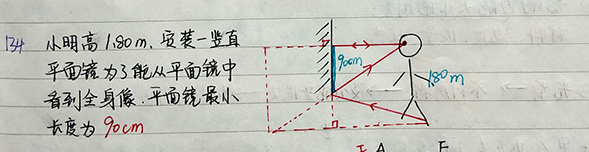 134
小明高1.80m.安装一竖直
平面镜为了能从平面镜中
看到全身像.平面镜最小
长度为 90cm
90cm
1.80m
A